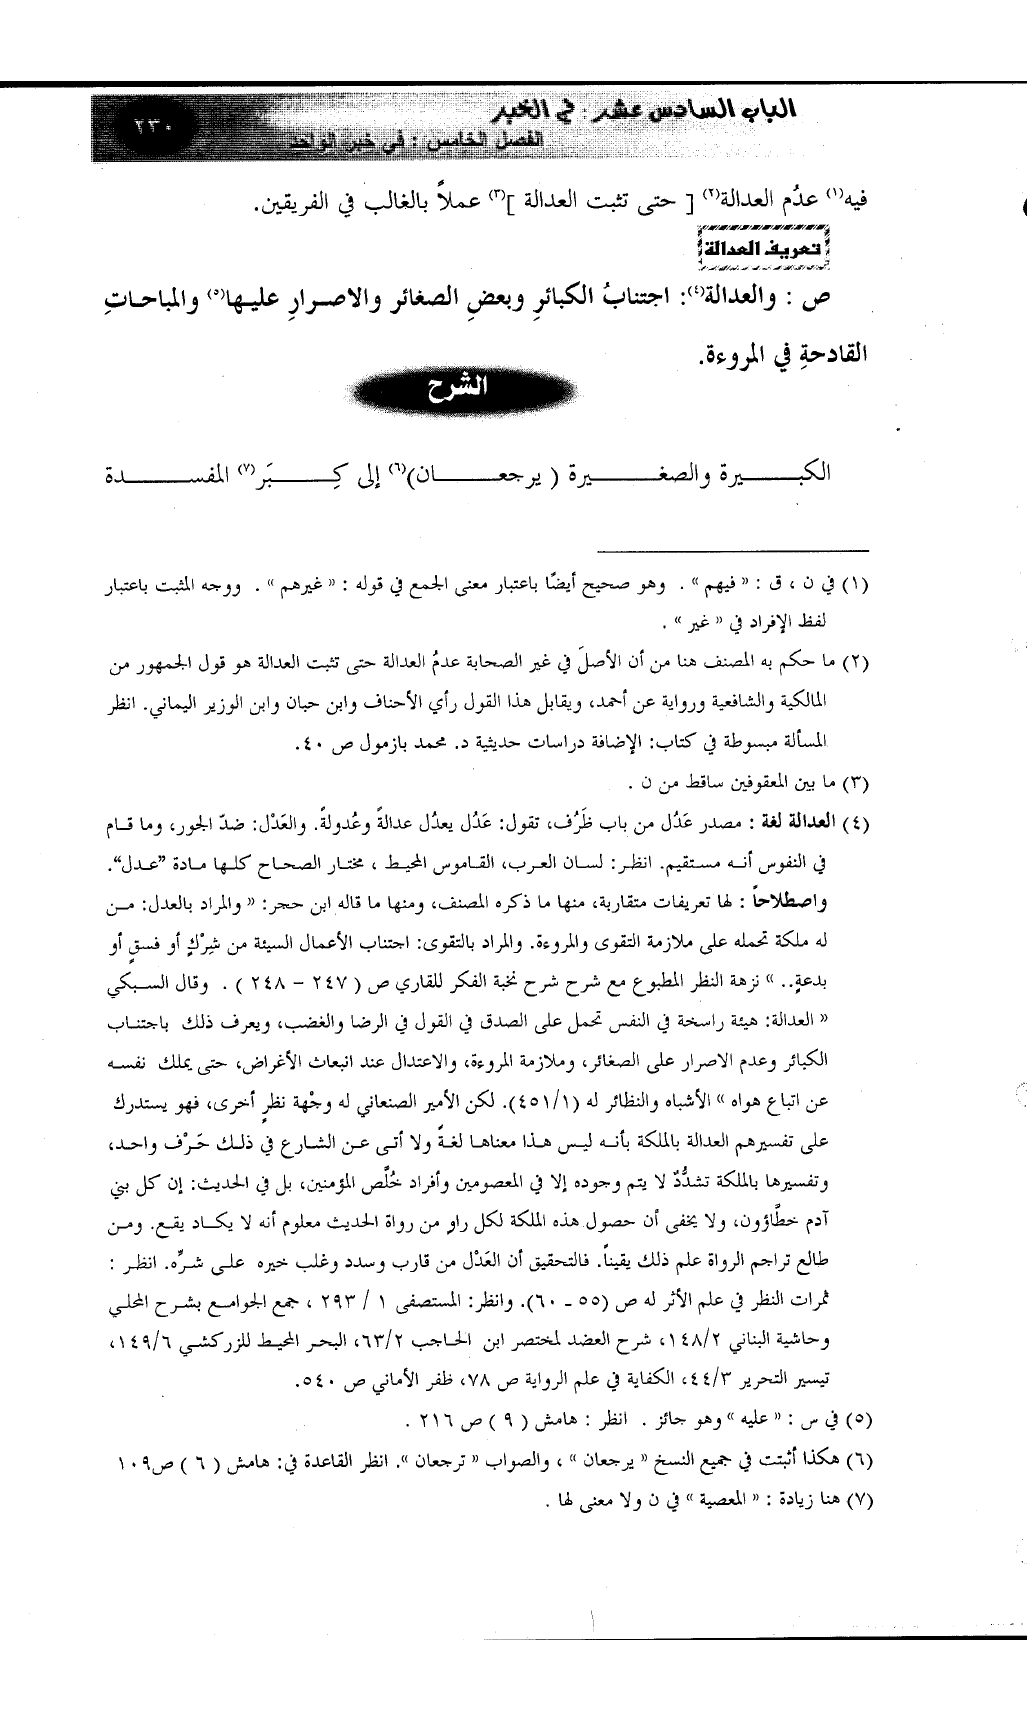 الباب السادس عشر : في الخبر
الفصل الخامس : في خبر الواحد
٢٣٠
فيه(١) عدُم العدالة(٢) [ حتى تثبت العدالة ](٣) عملاً بالغالب في الفريقين.
تعريف العدالة
ص : والعدالة(٤): اجتنابُ الكبائرِ وبعضِ الصغائر والاصرارِ عليها(٥) والمباحاتِ
القادحةِ في المروءة.
الشرح
الكبيرة والصغيرة ( يرجعان)(٦) إلى كِبَر(٧) المفسدة
(١) في ن ، ق : « فيهم » . وهو صحيح أيضًا باعتبار معنى الجمع في قوله : « غيرهم » . ووجه المثبت باعتبار
لفظ الإفراد في « غير » .
(٢) ما حكم به المصنف هنا من أن الأصلَ في غير الصحابة عدمُ العدالة حتى تثبت العدالة هو قول الجمهور من
المالكية والشافعية ورواية عن أحمد، ويقابل هذا القول رأي الأحناف وابن حبان وابن الوزير اليماني. انظر
المسألة مبسوطة في كتاب: الإضافة دراسات حديثية د. محمد بازمول ص ٤٠.
(٣) ما بين المعقوفين ساقط من ن .
(٤) العدالة لغة : مصدر عَدُل من باب ظَرُف، تقول: عَدُل يعدُل عدالةً وعُدولةً. والعَدْل: ضدّ الجور، وما قام
في النفوس أنه مستقيم. انظر: لسان العرب، القاموس المحيط ، مختار الصحاح كلها مادة “عدل”.
واصطلاحاً : لها تعريفات متقاربة، منها ما ذكره المصنف، ومنها ما قاله ابن حجر: « والمراد بالعدل: من
له ملكة تحمله على ملازمة التقوى والمروءة. والمراد بالتقوى: اجتناب الأعمال السيئة من شِرْكٍ أو فسقٍ أو
بدعةٍ.. » نزهة النظر المطبوع مع شرح شرح نخبة الفكر للقاري ص ( ٢٤٧ - ٢٤٨ ) . وقال السبكي
« العدالة: هيئة راسخة في النفس تحمل على الصدق في القول في الرضا والغضب، ويعرف ذلك باجتناب
الكبائر وعدم الاصرار على الصغائر، وملازمة المروءة، والاعتدال عند انبعاث الأغراض، حتى يملك نفسه
عن اتباع هواه » الأشباه والنظائر له (٤٥١/١). لكن الأمير الصنعاني له وجْهة نظرٍ أخرى، فهو يستدرك
على تفسيرهم العدالة بالملكة بأنه ليس هذا معناها لغةً ولا أتى عن الشارع في ذلك حَرْف واحد،
وتفسيرها بالملكة تشدُّدٌ لا يتم وجوده إلا في المعصومين وأفراد خُلَّص المؤمنين، بل في الحديث: إن كل بني
آدم خطَّاؤون، ولا يخفى أن حصول هذه الملكة لكل راوٍ من رواة الحديث معلوم أنه لا يكاد يقع. ومن
طالع تراجم الرواة علم ذلك يقيناً. فالتحقيق أن العَدْل من قارب وسدد وغلب خيره على شرِّه. انظر :
ثمرات النظر في علم الأثر له ص (٥٥ - ٦٠). وانظر: المستصفى ١ / ٢٩٣ ، جمع الجوامع بشرح المحلي
وحاشية البناني ١٤٨/٢، شرح العضد لمختصر ابن الحاجب ٦٣/٢، البحر المحيط للزركشي ١٤٩/٦،
تيسير التحرير ٤٤/٣، الكفاية في علم الرواية ص ٧٨، ظفر الأماني ص ٥٤٠.
(٥) في س : « عليه » وهو جائز . انظر : هامش ( ٩ ) ص ٢١٦ .
(٦) هكذا أثبتت في جميع النسخ « يرجعان » ، والصواب « ترجعان ». انظر القاعدة في: هامش ( ٦ ) ص١٠٩
(٧) هنا زيادة : « المعصية » في ن ولا معنى لها .